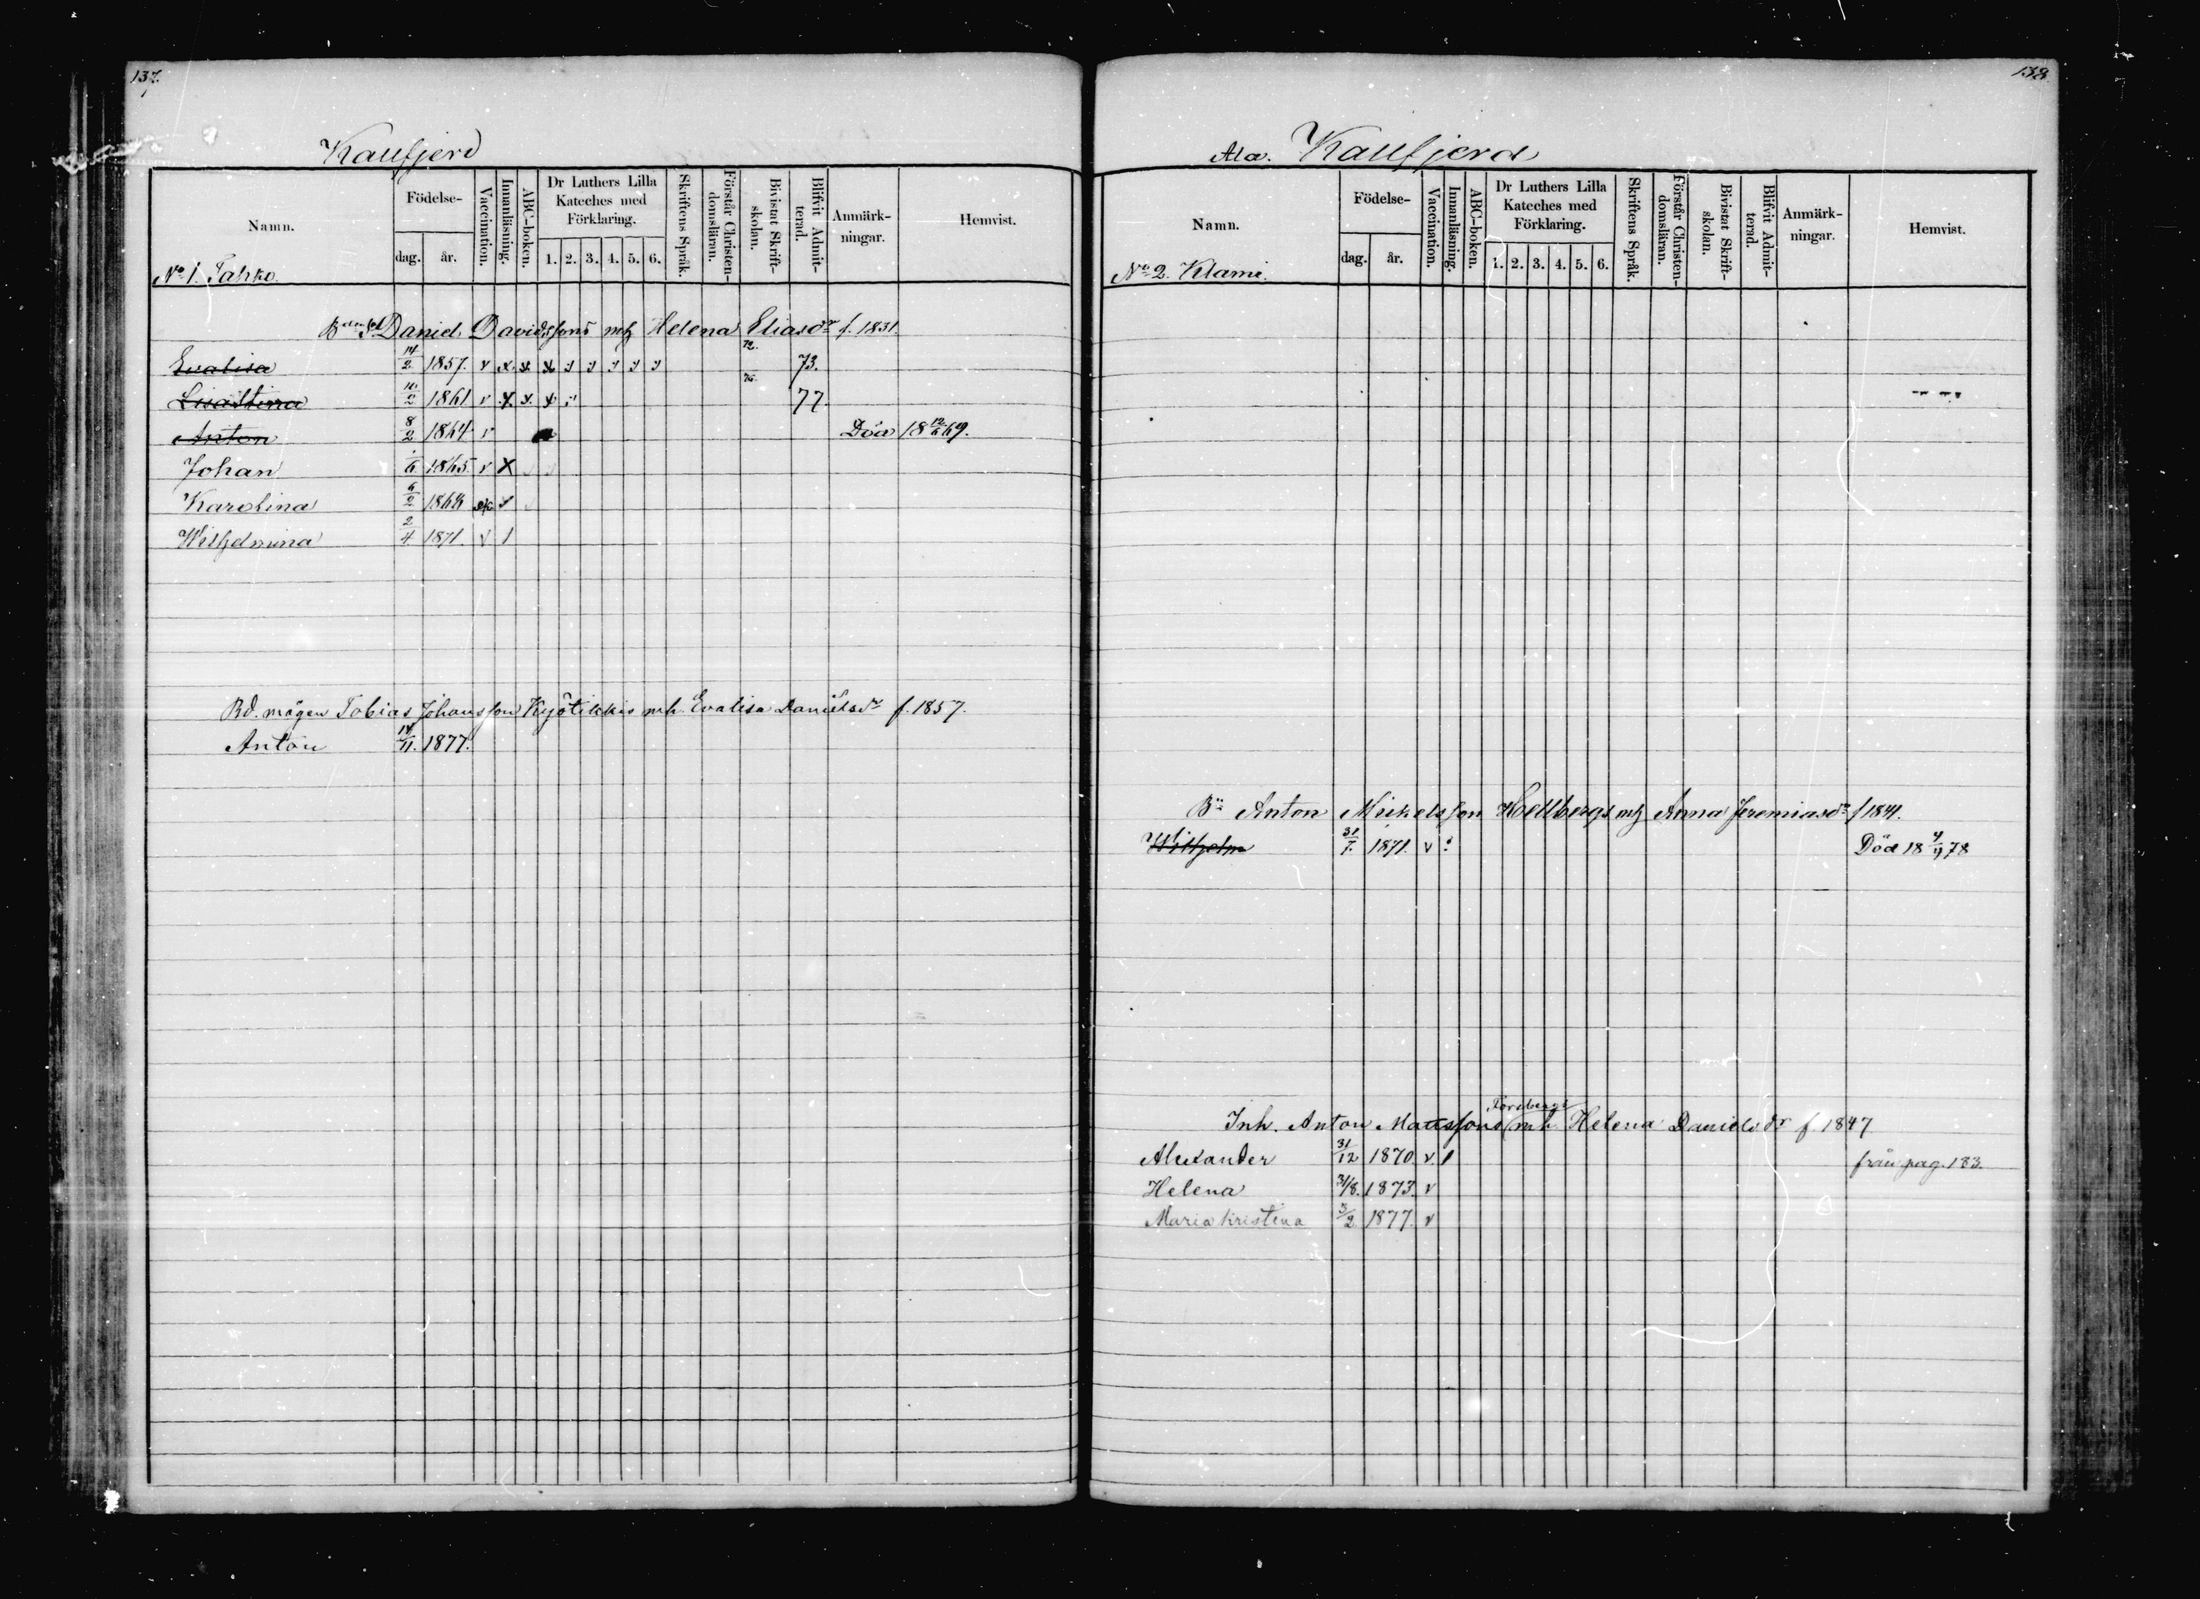 137.
Kaufjerd
Namn.
Födelse-
dag. år.
Vaccination.
Innanläsning.
ABC-boken.
Dr Luthers Lilla Kateches med Förklaring.
1. 2. 3. 4. 5. 6.
Skriftens Språk.
Förstår Christen-domsläran.
Bivistat Skrift-skolan.
Blifvit Admit-terad.
Anmärk-ningar.
Hemvist.
No 1. Tahko.
Daniel Davidssons mh Helena Eliasdr f. 1831.
Evalisa 14/2 1857. v x. x. x 72. 73.
Lisa Stina 1861 v x. x. x 76. 77.
Anton 8/2 1864 v Död 18 12/6 69.
Johan /6 1865. v x
Karolina 6/2 1868
Wilhelmina 2/4 1871. v 1
Bd. mågen Tobias Johansson Kyötikkis mh. Evalisa Danielsdr f. 1857.
Anton 14/11. 1877.
138.
Ala. Kaufjerd
Namn.
Födelse-
dag. år.
Vaccination.
Innanläsning.
ABC-boken.
Dr Luthers Lilla Kateches med Förklaring.
1. 2. 3. 4. 5. 6.
Skriftens Språk.
Förstår Christen-domsläran.
Bivistat Skrift-skolan.
Blifvit Admit-terad.
Anmärk-ningar.
Hemvist.
No 2. Klami.
Bn Anton Mickelsson Hollbergs mh Anna Jeremiasdr f 1841.
Wilhelm 31/7. 1871. v Död 18 4/4 78
Forsbergs
Inh. Anton Mattssons mh. Helena Danielsdr f. 1847
Alexander 31/12 1870 v. 1 från pag. 183.
Helena 31/8. 1873. v
Maria Kristina 3/2. 1877. v